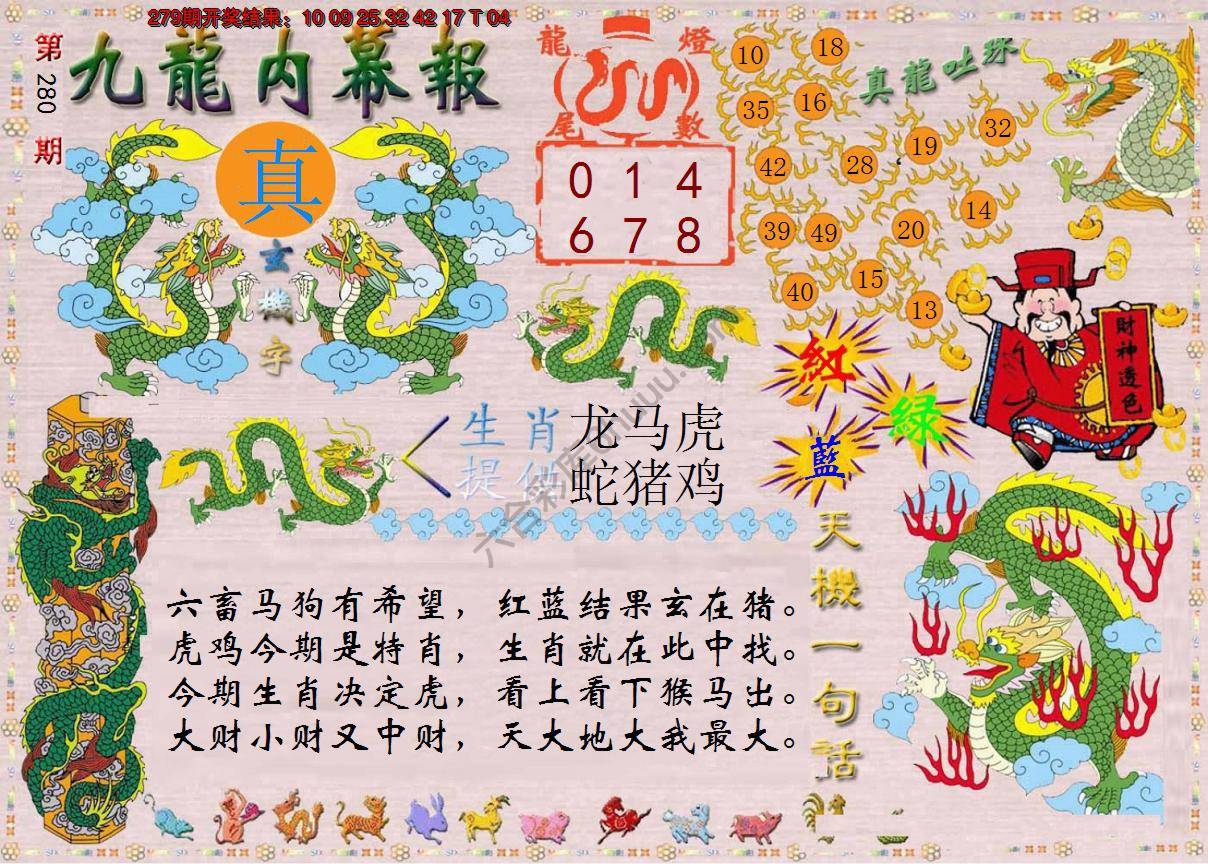 279期开奖结果：10 09 25 32 42 17 T 04
第280期
九龍内幕報
龍燈尾數
0 1 4
6 7 8
真龍吐珠
10 18
35 16
42 28 19 32
39 49 20 14
40 15 13
真
玄機字
財神透色
紅
綠
藍
生肖 龙马虎
提供 蛇猪鸡
天機一句話
六畜马狗有希望，红蓝结果玄在猪。
虎鸡今期是特肖，生肖就在此中找。
今期生肖决定虎，看上看下猴马出。
大财小财又中财，天大地大我最大。